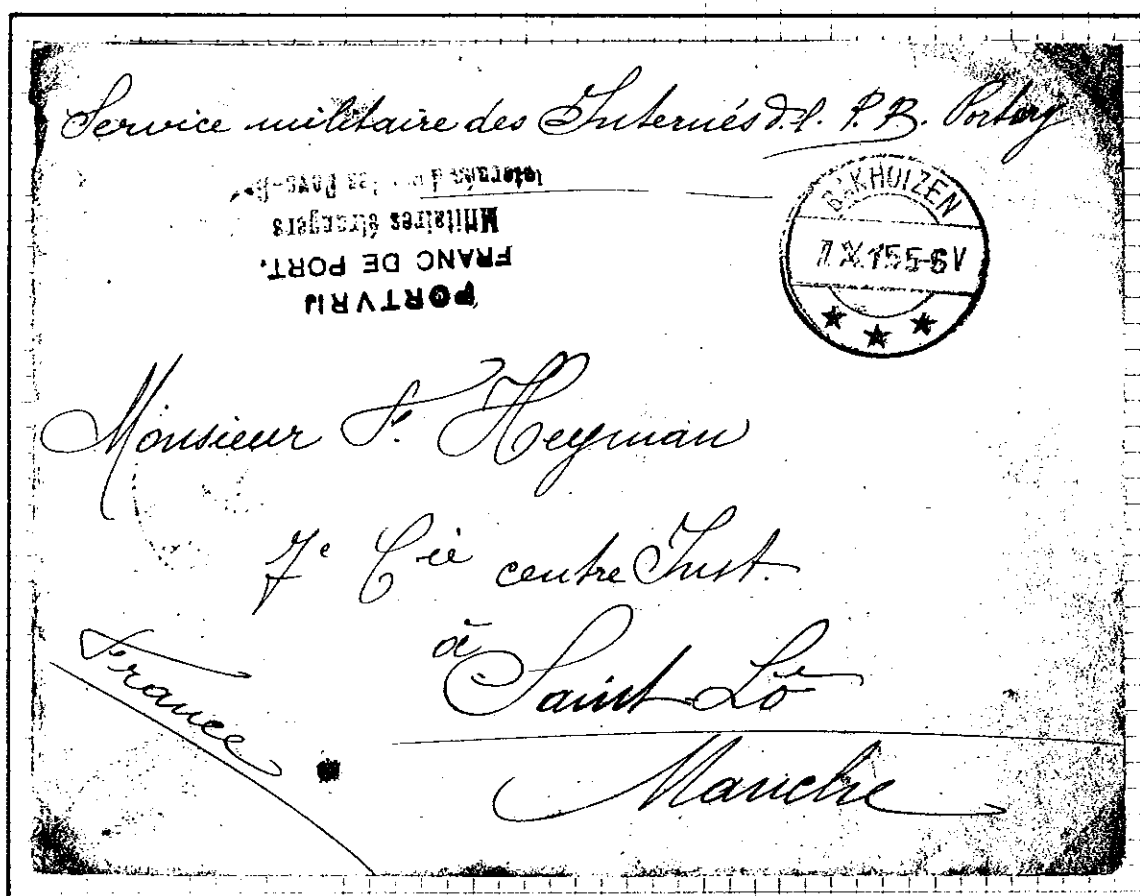 Service militaire des Internés d. l. P. B. Portvrij
PORTVRIJ
FRANC DE PORT.
Militaires étrangers
internés dans les Pays-Bas
BAKHUIZEN
7.X.15 5-6V
Monsieur F. Heyman
7e Cie centre Inst.
à
Saint Lô
Manche
France